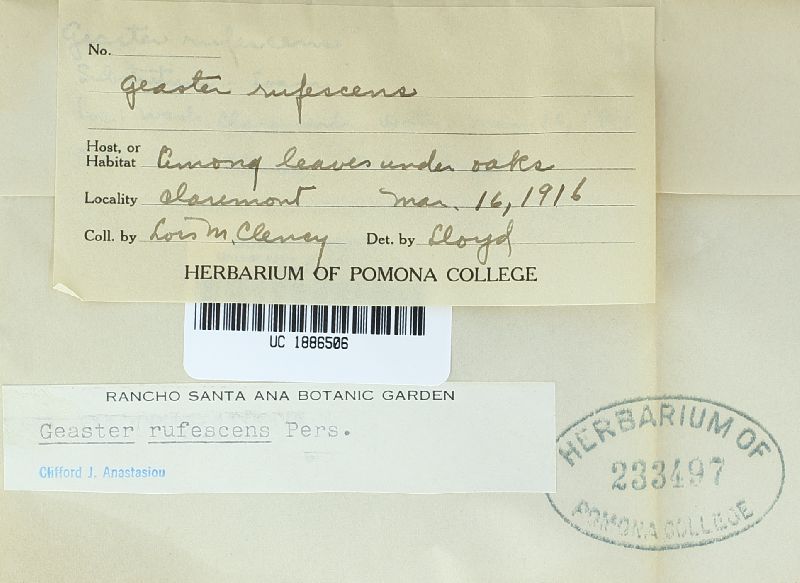 No.
Geaster rufescens
Host, or
Habitat Among leaves under oaks
Locality Claremont Mar. 16, 1916
Coll. by Lois M. Clency Det. by Lloyd
HERBARIUM OF POMONA COLLEGE
UC 1886506
RANCHO SANTA ANA BOTANIC GARDEN
Geaster rufescens Pers.
Clifford J. Anastasiou
HERBARIUM OF
233497
POMONA COLLEGE